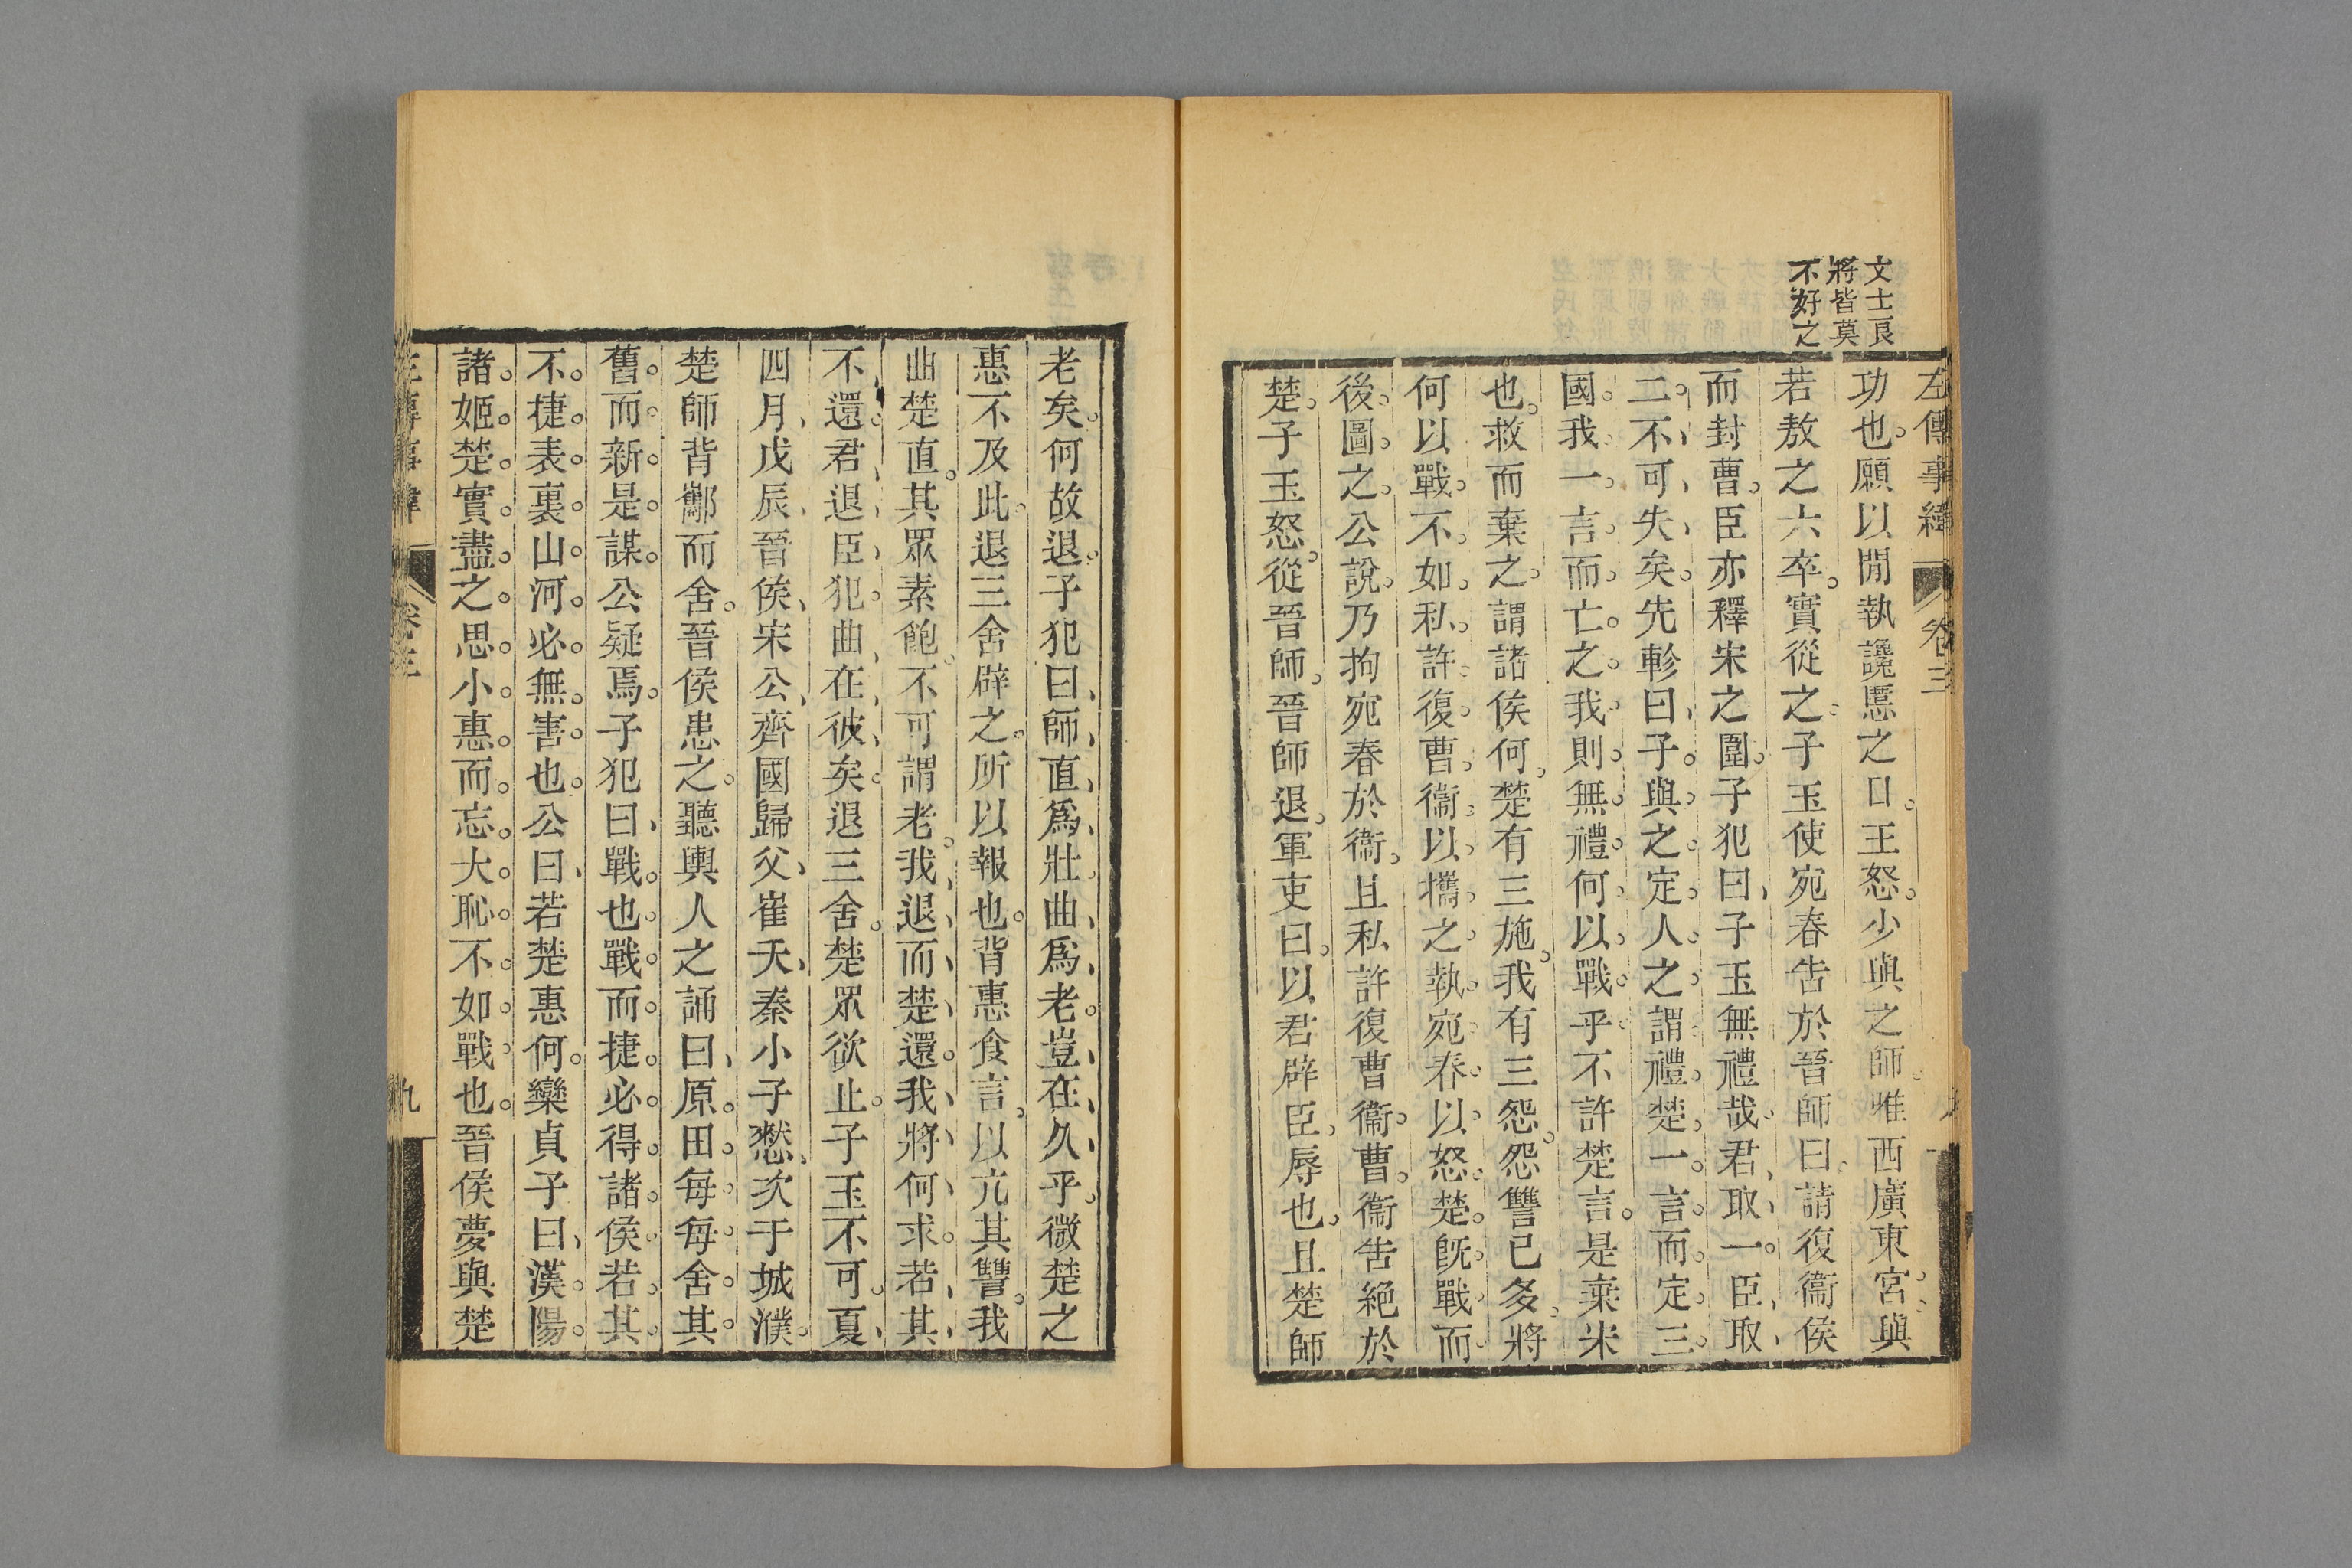 文士良
將皆莫
不好之
左傳事緯
卷三
功也願以閒執讒慝之口王怒少與之師唯西廣東宮與
若敖之六卒實從之子玉使宛春告於晉師曰請復衞侯
而封曹臣亦釋宋之圍子犯曰子玉無禮哉君取一臣取
二不可失矣先軫曰子與之定人之謂禮楚一言而定三
國我一言而亡之我則無禮何以戰乎不許楚言是棄宋
也救而棄之謂諸侯何楚有三施我有三怨怨讐已多將
何以戰不如私許復曹衞以攜之執宛春以怒楚旣戰而
後圖之公說乃拘宛春於衞且私許復曹衞曹衞告絕於
楚子玉怒從晉師晉師退軍吏曰以君辟臣辱也且楚師
老矣何故退子犯曰師直爲壯曲爲老豈在久乎微楚之
惠不及此退三舍辟之所以報也背惠食言以亢其讐我
曲楚直其眾素飽不可謂老我退而楚還我將何求若其
不還君退臣犯曲在彼矣退三舍楚眾欲止子玉不可夏
四月戊辰晉侯宋公齊國歸父崔夭秦小子憖次于城濮
楚師背酅而舍晉侯患之聽輿人之誦曰原田每每舍其
舊而新是謀公疑焉子犯曰戰也戰而捷必得諸侯若其
不捷表裏山河必無害也公曰若楚惠何欒貞子曰漢陽
諸姬楚實盡之思小惠而忘大恥不如戰也晉侯夢與楚
左傳事緯
卷三
九